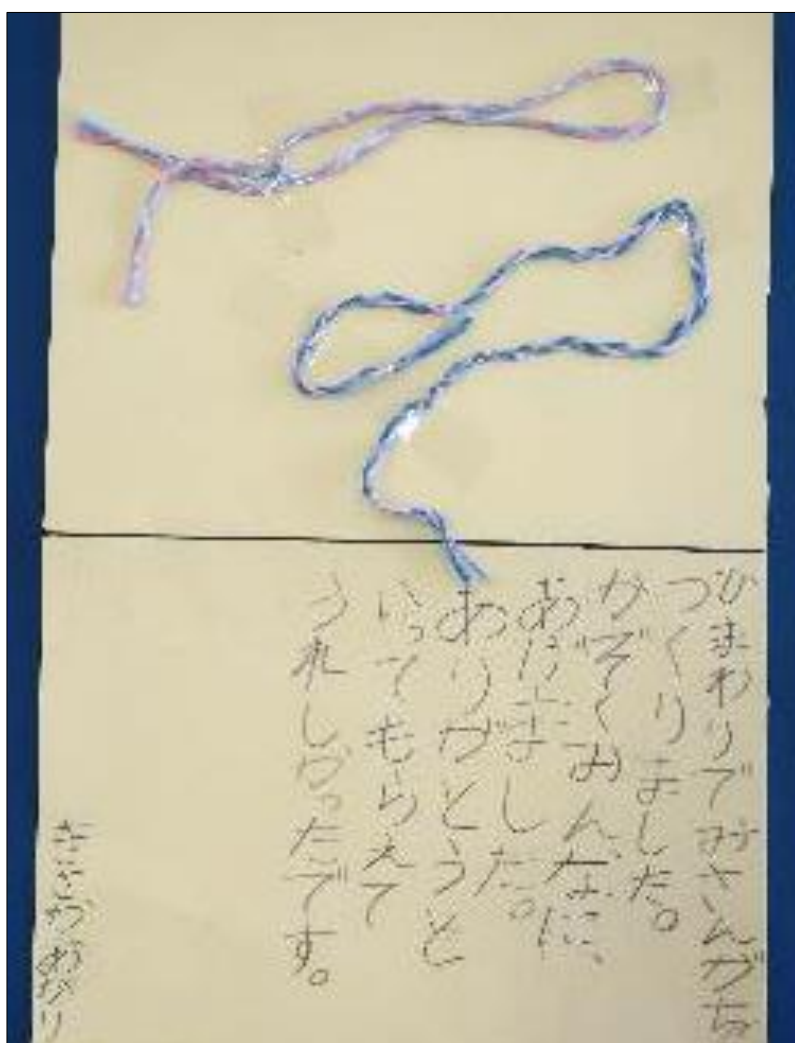 がまわりでみさんがを
つくりました。
かぞくみんなに、
あげました。
ありがとうと
いってもらえて
うれしかったです。